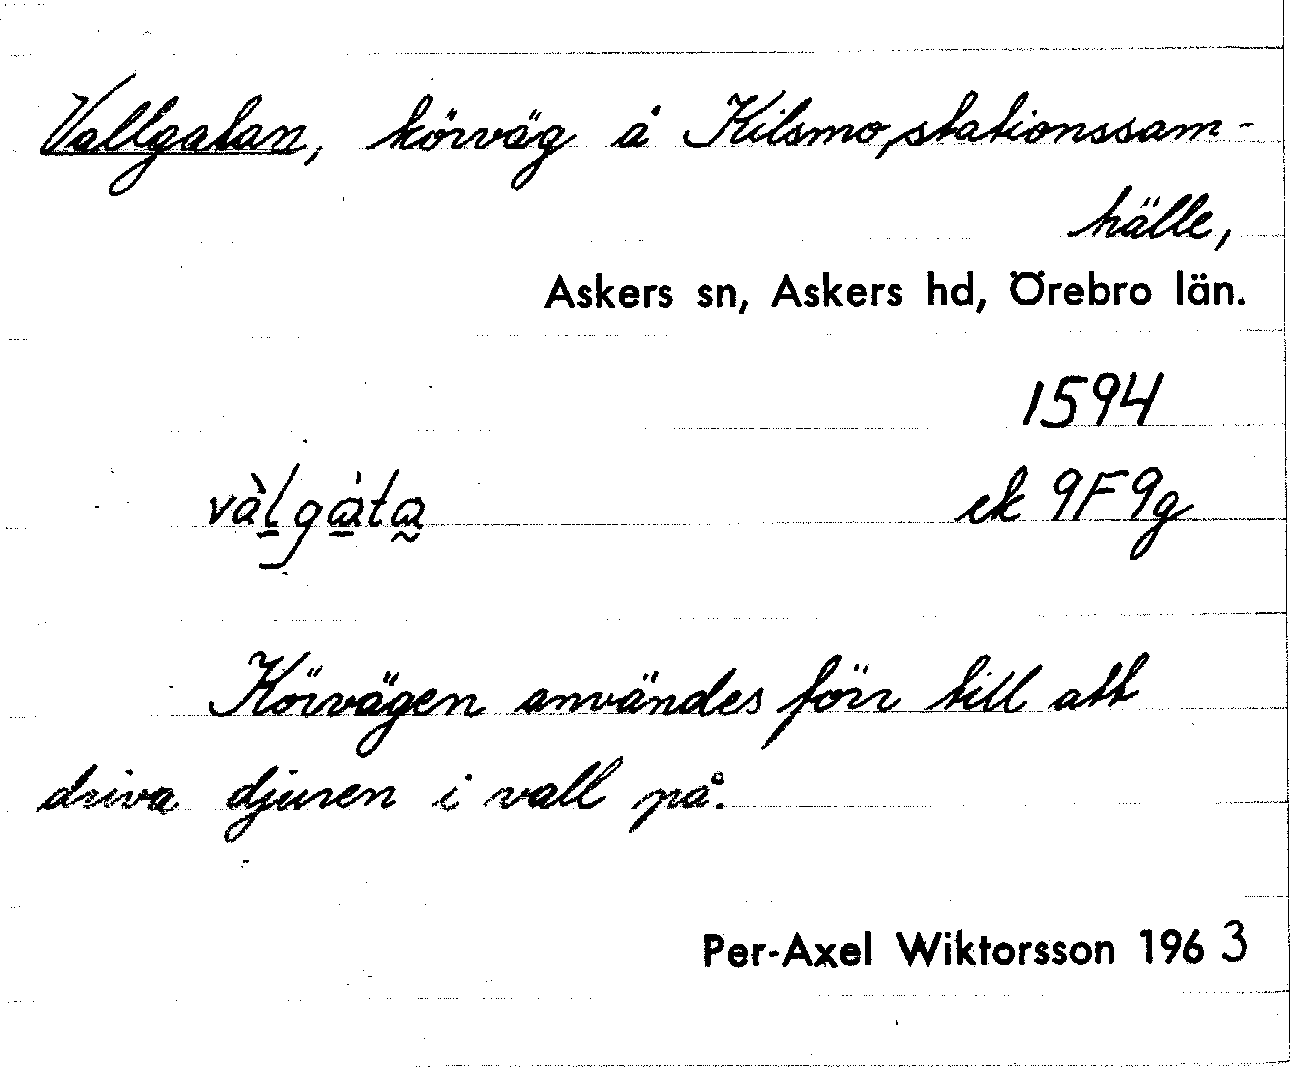 Vallgatan, körväg å Kilsmo, stationssam-
hälle,
Askers sn, Askers hd, Örebro län.
1594
vàlgàta ek 9F9g
Körvägen användes förr till att
driva djuren i vall på.
Per-Axel Wiktorsson 1963